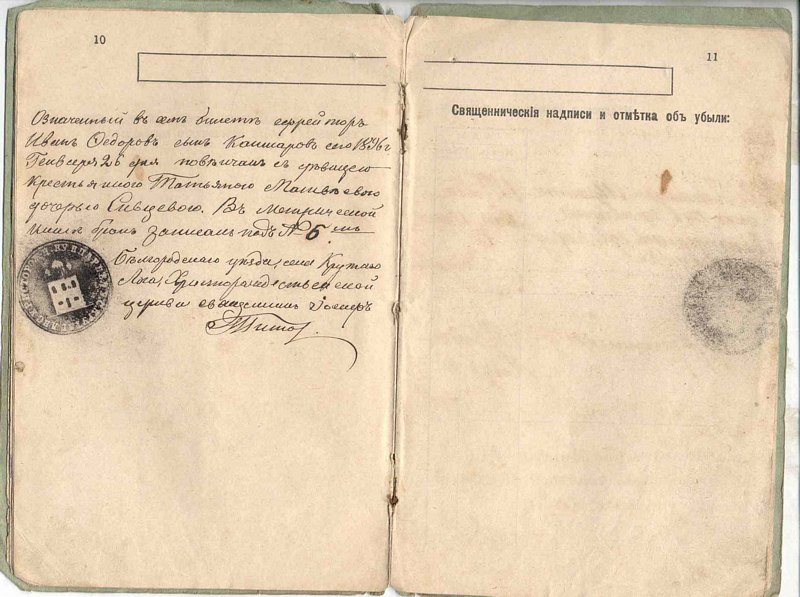 10
Означенный въ семъ билетѣ ефрейторъ
Иванъ Ѳедоровъ сынъ Кашаровъ сего 1876 г
Генваря 26 дня повѣнчанъ съ дѣвицею
крестьянкою Татьяною Матвѣевою
дочерью Сивцевою. Въ метрической
книгѣ бракъ записанъ подъ № 6 мъ
Бѣлгородскаго уѣзда, села Крутаго
Лога, Христорождественской
церкви священникъ
Титовъ
11
Священническія надписи и отмѣтка объ убыли: